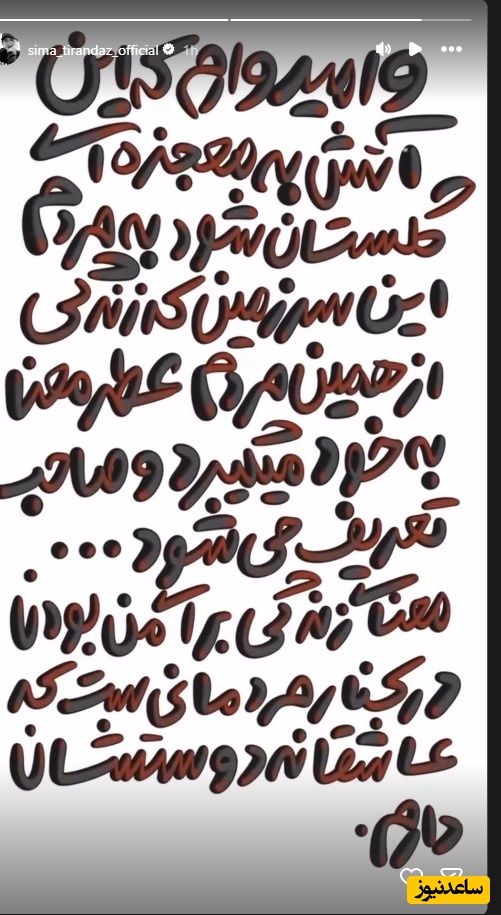 sima_tirandaz_official 1h
و امیدوارم که این
آتش به معجزه‌ای
گلستان شود به مردم
این سرزمین که زندگی
از همین مردم عطر معنا
به خود میگیرد و صاحب
تعریف می شود ...
معنای زندگی برای من بودن
در کنار مردمانی ست که
عاشقانه دوستشان
دارم.
ساعدنیوز